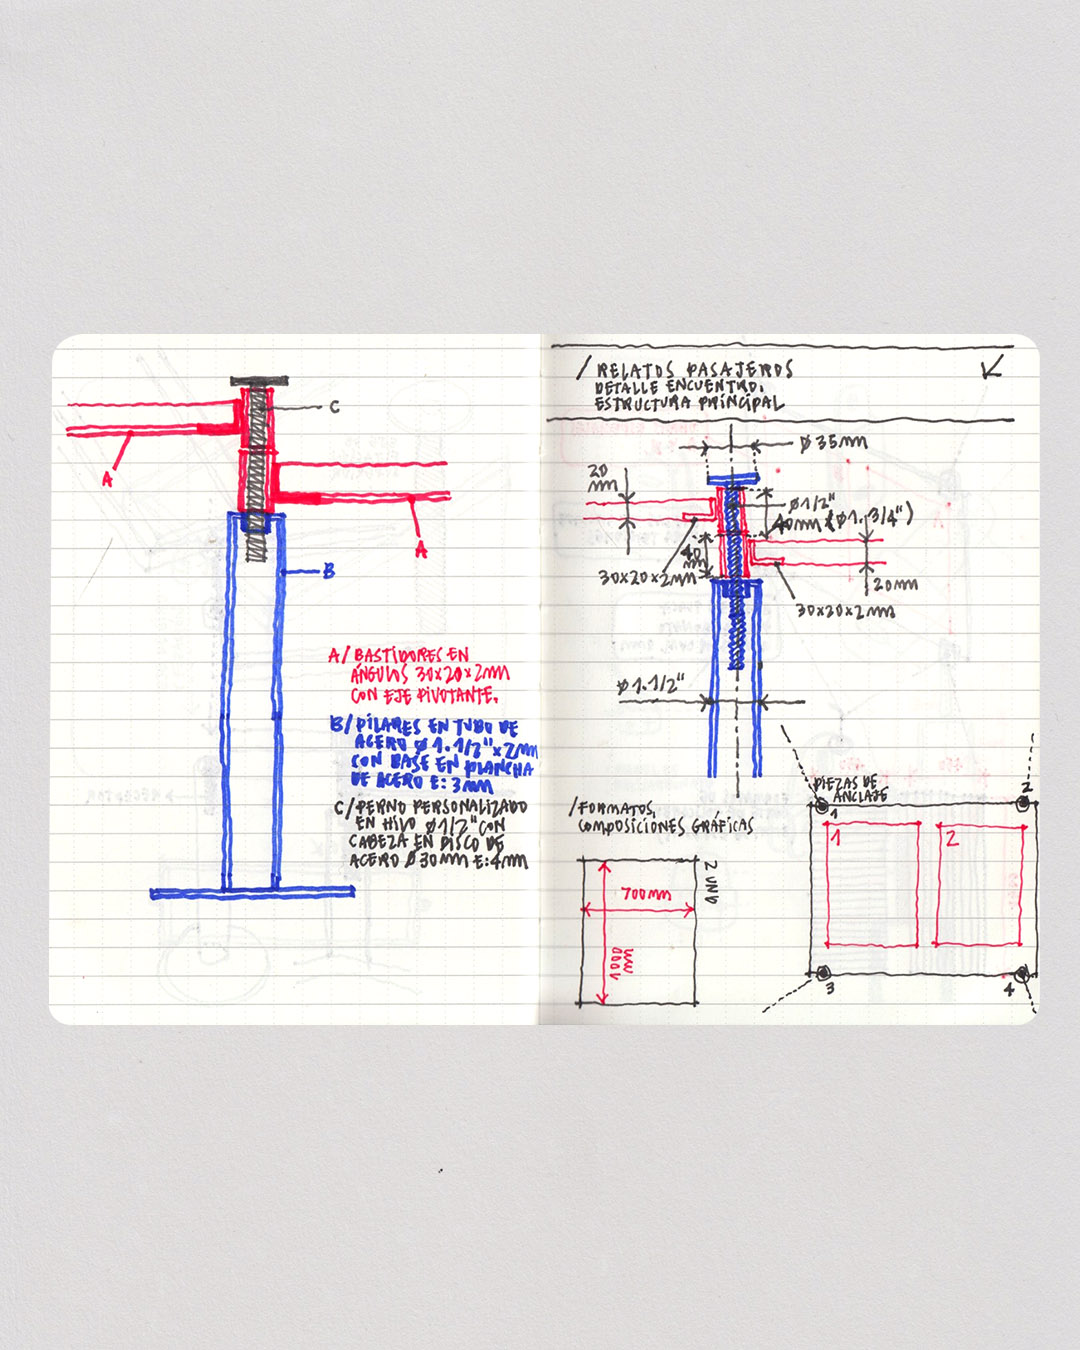 C
A
A
B
A/ BASTIDORES EN
ÁNGULOS 30x20x2mm
CON EJE PIVOTANTE.
B/ PILARES EN TUBO DE
ACERO Ø 1.1/2"x2mm
CON BASE EN PLANCHA
DE ACERO E: 3mm
C/ PERNO PERSONALIZADO
EN HILO Ø1/2" CON
CABEZA EN DISCO DE
ACERO Ø30mm E:4mm
/ RELATOS PASAJEROS
DETALLE ENCUENTRO.
ESTRUCTURA PRINCIPAL
Ø 35mm
20
mm
Ø1/2"
40mm (Ø1.3/4")
40
mm
30x20x2mm
20mm
30x20x2mm
Ø1.1/2"
/FORMATOS,
COMPOSICIONES GRÁFICAS
2 UND
700mm
mm
PIEZAS DE
ANCLAJE
1
2
1
2
3
4